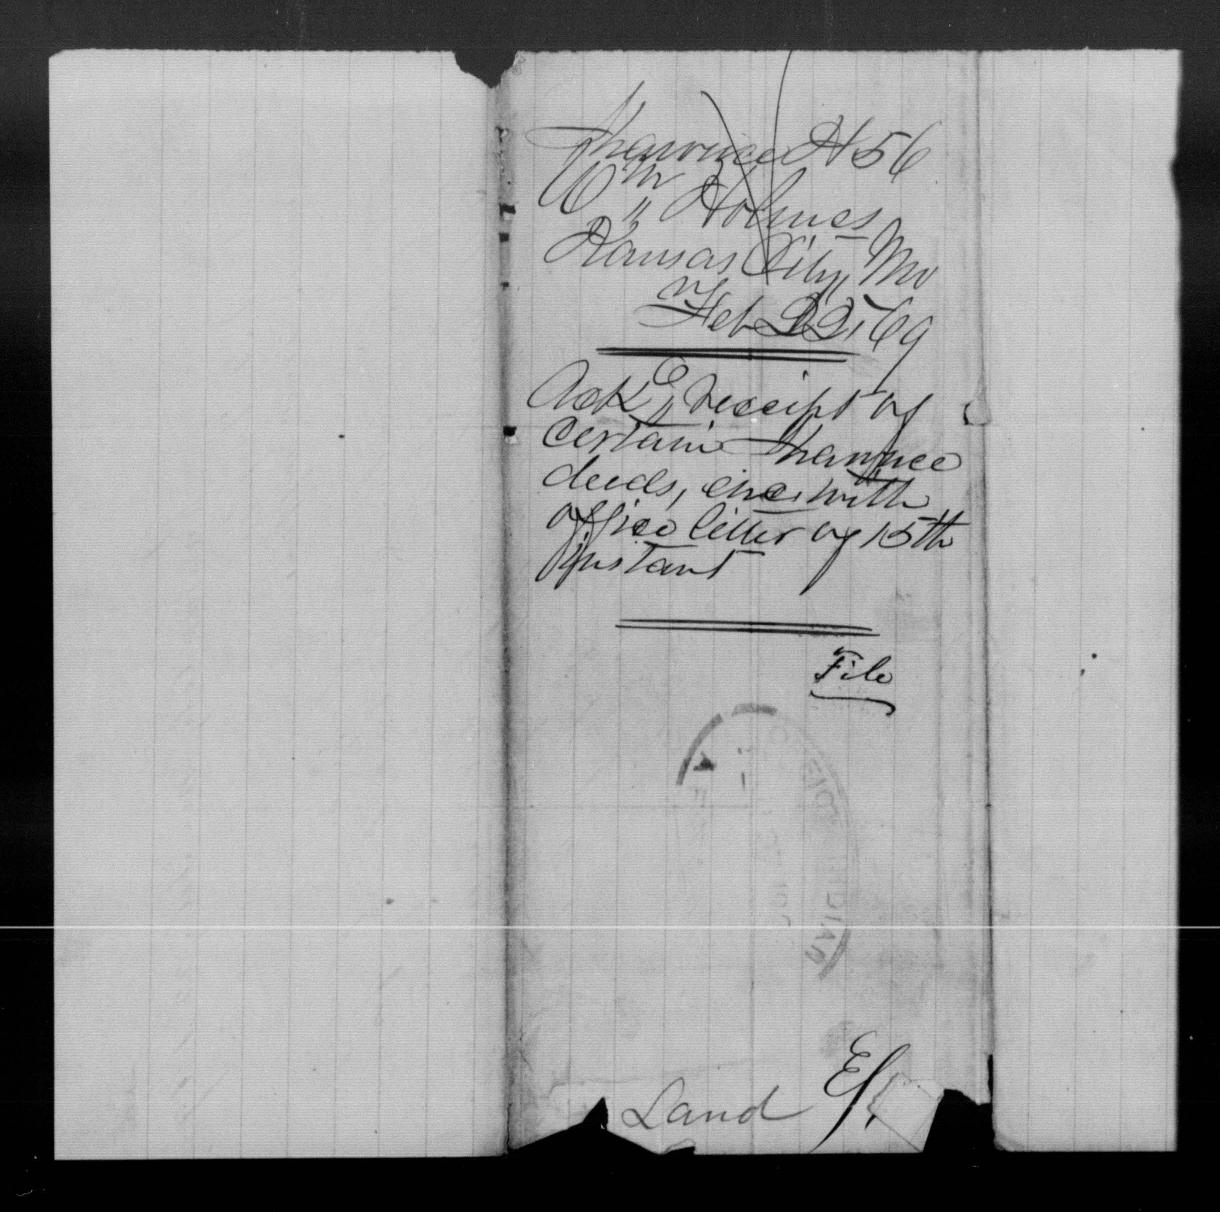 Shawnee H 56
Wm Holmes
Kansas City, Mo
Feb 22, 69
Ackd receipt of
certain Shawnee
deeds, enc. with
office letter of 15th
instant
File
OFFICE INDIAN
Land